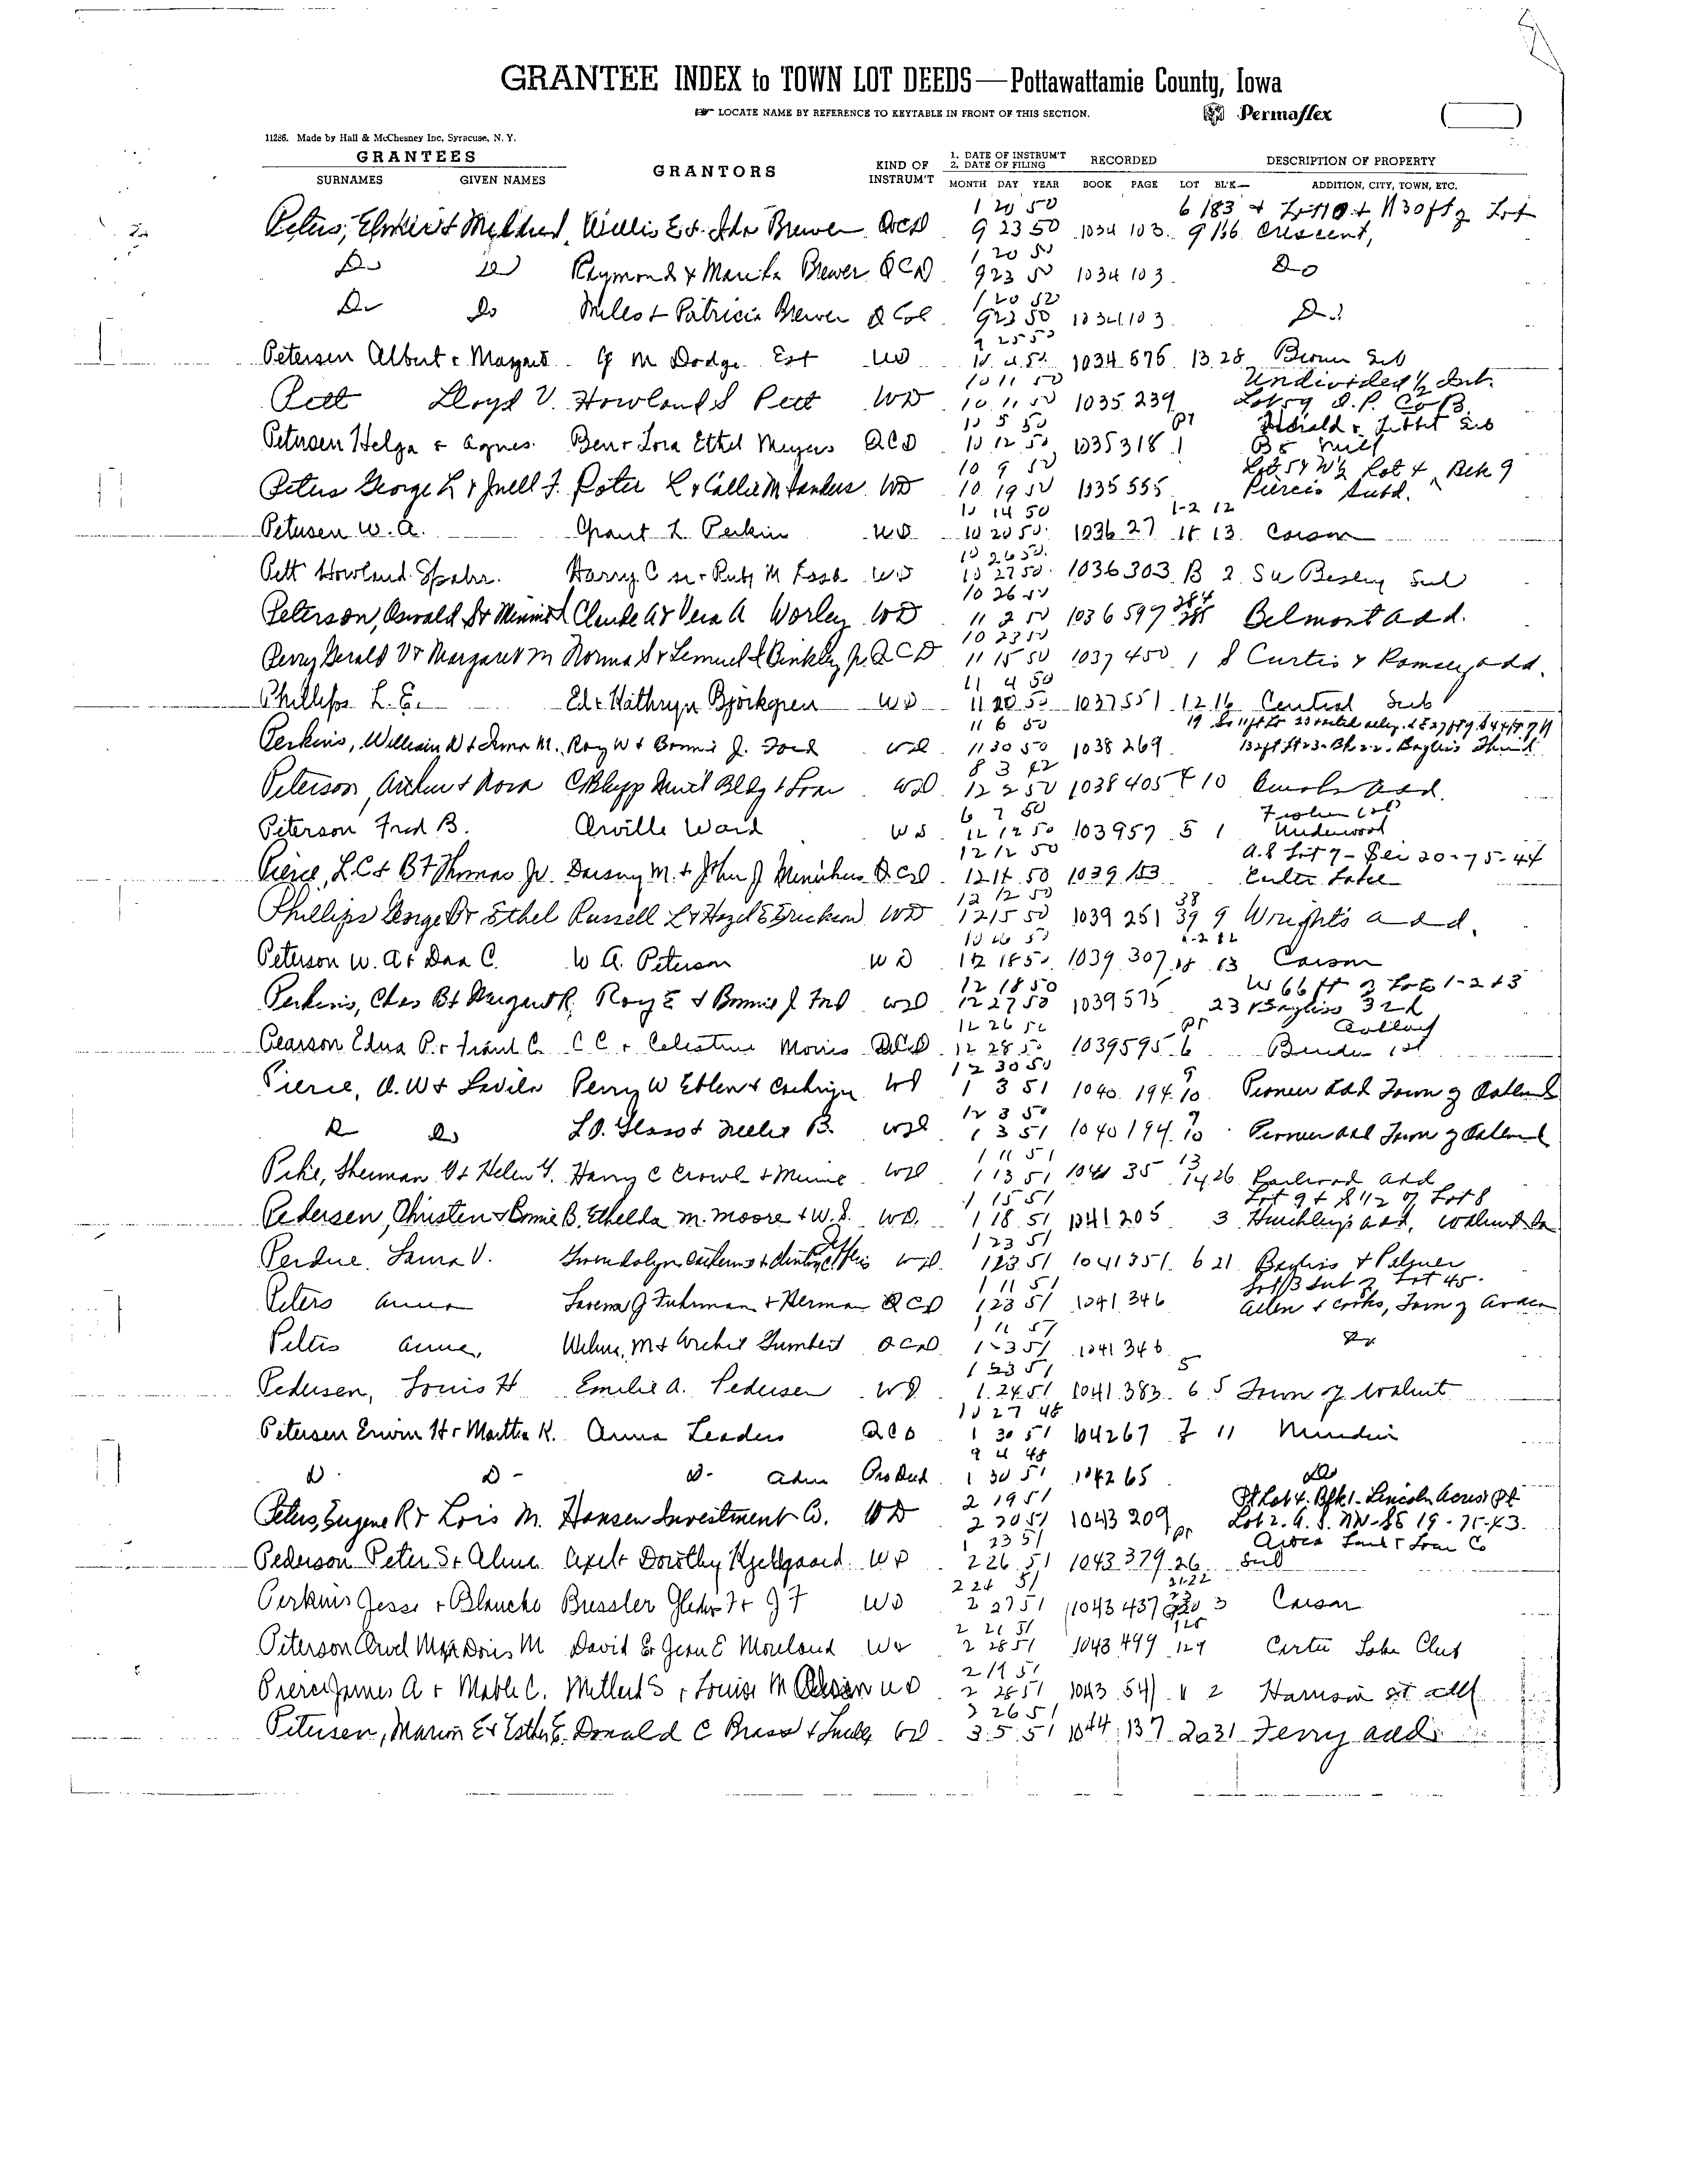 GRANTEE INDEX to TOWN LOT DEEDS—Pottawattamie County, Iowa
LOCATE NAME BY REFERENCE TO KEYTABLE IN FRONT OF THIS SECTION.
Permaflex
11286. Made by Hall & McChesney Inc. Syracuse, N. Y.
GRANTEES GRANTORS KIND OF INSTRUM'T 1. DATE OF INSTRUM'T 2. DATE OF FILING RECORDED DESCRIPTION OF PROPERTY
SURNAMES GIVEN NAMES MONTH DAY YEAR BOOK PAGE LOT BL'K— ADDITION, CITY, TOWN, ETC.
1 20 50 6 183 + Lot 10 + N 30 ft of Lot
Peters, & Mildred, Willis E + Ida Brewer QCD 9 23 50 1034 103 9 186 Crescent,
1 20 50
Do Do Raymond & Brewer QCD 9 23 50 1034 103 Do
1 20 50
Do Do Miles + Patricia Brewer Q Cd 9 23 50 1034 103 Do
9 25 50
Petersen Albert & Margaret G M Dodge Est WD 10 50 1034 575 13 28 Brown Sub
10 11 50 Undivided 1/2 Int.
Pett Lloyd V. Howland S Pett WD 10 11 50 1035 239 Lot 59 O.P. Co B
10 5 50 pt
Petersen Helga + Agnes Ben + Lora Ethel Meyers QCD 10 12 50 1035 318 1 B5
10 9 50 W½ Lot 4, Blk 9
Peters George L + Juell F. L + Callie M WD 10 19 50 1035 555 Pierces Subd.
10 14 50 1-2 12
Petersen W. A. Grant L Perkin WD 10 20 50 1036 27 18 13 Carson
10 26 50
Pett Howland Spahr. Harry C + Ruby M WD 10 27 50 1036 303 B 2 Besley Sub
10 26 50 284
Peterson, Oswald S + Minnie Claude A + Vera A Worley WD 11 2 50 1036 597 285 Belmont add.
10 23 50
Perry Gerald V + Margaret M Norma S + Lemuel S Binkley Jr. QCD 11 15 50 1037 450 1 8 Curtis & Ramsey add.
11 4 50
Phillips L. E. Ed & Kathryn Bjorkgren WD 11 20 50 1037 551 12 16 Central Sub
11 6 50
Perkins, William W + Irma M. Roy W + Bonnie J. Ford WD 11 30 50 1038 269
8 3 42
Peterson, Arthur + Nora Bldg + Loan WD 12 2 50 1038 405 4 10 add.
6 7 50
Peterson Fred B. Orville Ward WD 12 12 50 1039 57 5 1 Underwood
12 12 50 A.S Lot 7 - Sec 20-75-44
Pierce, L.C + B F Thomas Jr. M. + John J Minichus QCD 12 14 50 1039 153 Carter Lake
12 12 50 38
Phillips George D + Ethel Russell L + Hazel E Erickson WD 12 15 50 1039 251 39 9 Wright's add.
1-2 12
Peterson W. A + Dea C. W A. Peterson WD 12 18 50 1039 307 18 13 Carson
12 18 50 W 66 ft of Lots 1-2+3
Perkins, Chas B + Margaret R. Roy E + Bonnie J. Ford WD 12 27 50 1039 573 23 Bayliss 3rd
12 26 50 pt
Pearson Edna P. + Frank C. C C + Celestine Morris QCD 12 28 50 1039 595 6 Bender 1st
12 30 50 9
Pierce, O. W + Lavila Perry W Eblen + WD 1 3 51 1040 194 10 Pioneer add Town of Oakland
12 3 50 9
Do Do L.O. + Nellie B. WD 1 3 51 1040 194 10 Pioneer add Town of Oakland
1 11 51 13
Pike, Sherman V + Helen Y. Harry C Crowl + Minnie WD 1 13 51 1041 35 14 26 Railroad add
1 15 51 Lot 9 + S 1/2 of Lot 8
Pedersen, Christen + Bonnie B. Ethelda M. Moore + W.S. WD. 1 18 51 1041 205 3 Hinchley's add, Walnut Ia
1 23 51
Perdue, Laura V. Gwendolyn WD. 1 23 51 1041 351 6 21 Bayliss & Palmer
1 11 51 Lot 13 Sub of Lot 45.
Peters Anna Lavena J Fuhrman + Herman QCD 1 23 51 1041 346 Allen & Cooks, Town of Avoca
1 11 51
Peters Anna, Wilma M + Archie Gumbert QCD 1 23 51 1041 346 Do
1 23 51 5
Pedersen, Louis H Emilie A. Pedersen WD 1 24 51 1041 383 6 5 Town of Walnut
10 27 48
Petersen Erwin H + Martha K. Anna Leaders QCD 1 30 51 1042 67 7 11 Minden
9 4 48
D D - D - Adm Pro Deed 1 30 51 1042 65 Do
2 19 51 Pt Lot 4. Blk 1 - Lincoln Acres Pt
Peters, Eugene R + Lois M. Hansen Investment Co. WD 2 20 51 1043 209 Lot 2. A. S. NW-SE 19-75-43.
1 23 51 pt Avoca Land + Loan Co
Pederson Peter S + Alma Axel + Dorothy Kjeldgaard WD 2 26 51 1043 379 26 Sub
2 24 51 21-22
Perkins Jesse + Blanche Bussler F + J F WD 2 27 51 1043 437 3 Carson
2 21 51 128
Peterson Max Doris M David E + Jean E Moreland WD 2 28 51 1043 499 129 Carter Lake Club
2 19 51
Pierce James A + Mable C. Millard S + Louise M WD 2 28 51 1043 541 11 2 Harrison St add
2 26 51
Petersen, Marion E + Esther E. Donald C Brass + WD 3 5 51 1044 137 20 31 Ferry add